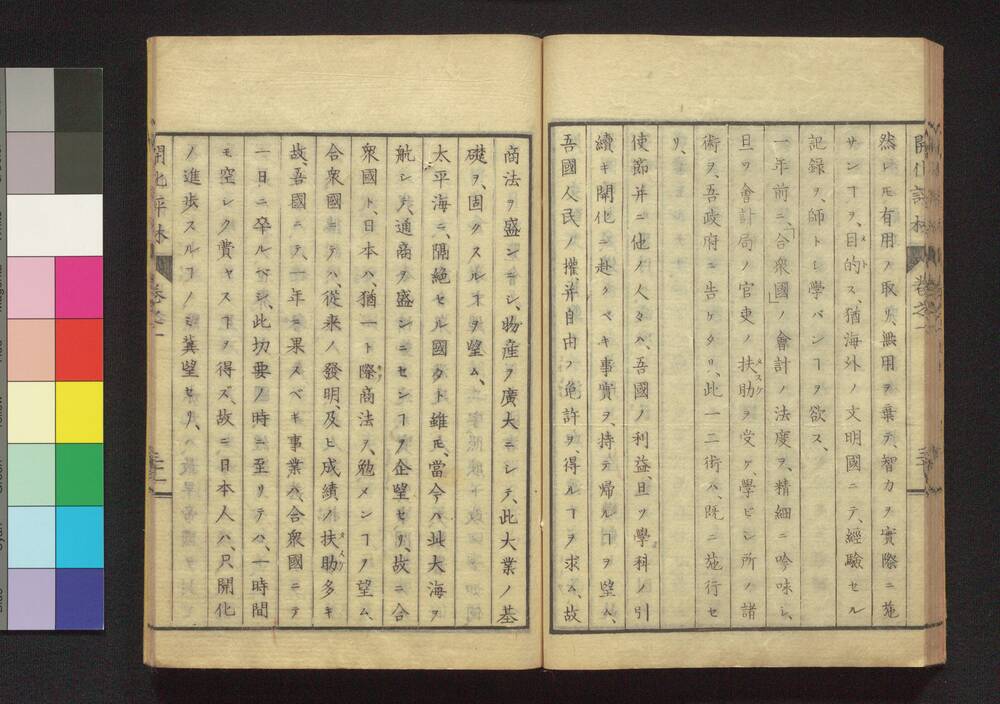 然レモ有用ノ取リ、無用ヲ棄テ、智力ヲ實際ニ施
サンヿヲ、目的ス、猶海外ノ文明國ニテ、經驗セル
記録ヲ、師トシ學バンヿヲ欲ス、
一年前ニ、「合衆國」ノ會計ノ法度ヲ、精細ニ吟味シ、
且ツ會計局ノ官吏ノ扶助ヲ受ケ、學ビシ所ノ諸
術ヲ、吾政府ニ告ケタリ、此一二術ハ、既ニ施行セ
リ、
使節并ニ他ノ人々ハ、吾國ノ利益、且ツ學科ノ引
續キ開化ニ赴クベキ事實ヲ、持テ帰ルヿヲ望ム、
吾國人民ノ權、并自由ノ免許ヲ、得ルヿヲ求ム、故
商法ヲ盛ンニシ、物産ヲ廣大ニシテ、此大業ノ基
礎ヲ、固クスルヿヲ望ム、
太平海ニ、隔絶セル國々ト雖モ、當今ハ此大海ヲ
航シテ、通商ヲ盛ンニセンヿヲ企望セリ、故ニ合
衆國ト、日本ハ、猶一ト際商法ヲ、勉メンヿヲ望ム、
合衆國ニテハ、從来ノ發明、及ヒ成績ノ扶助多キ
故、吾國ニテ、一年ニ果スベキ事業ハ、合衆國ニテ
一日ニ卒ルベシ、此切要ノ時ニ至リテハ、一時間
モ空シク費ヤスヿヲ得ズ、故ニ、日本人ハ、只開化
ノ進歩スルヿノミ冀望セリ、